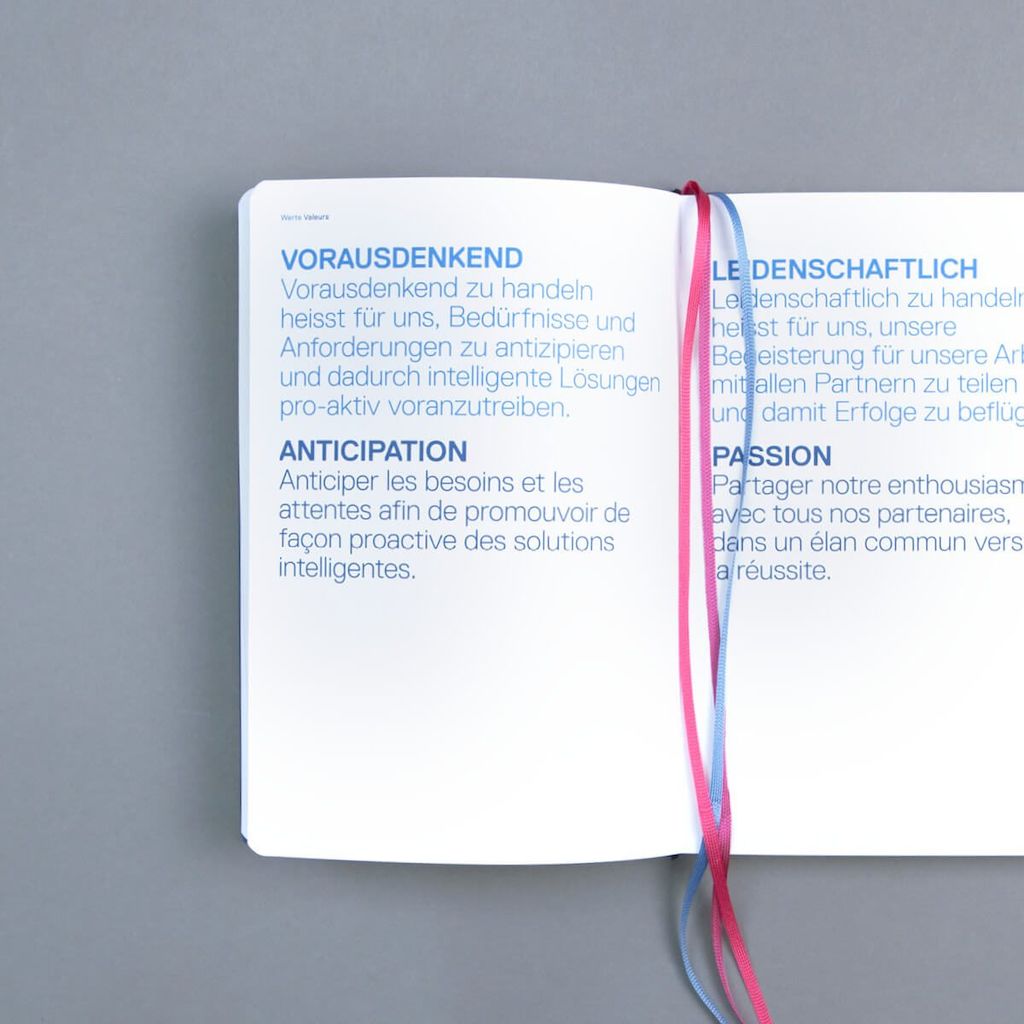 Werte Valeurs
VORAUSDENKEND
Vorausdenkend zu handeln
heisst für uns, Bedürfnisse und
Anforderungen zu antizipieren
und dadurch intelligente Lösungen
pro-aktiv voranzutreiben.
ANTICIPATION
Anticiper les besoins et les
attentes afin de promouvoir de
façon proactive des solutions
intelligentes.
LEIDENSCHAFTLICH
Leidenschaftlich zu handeln
heisst für uns, unsere
Begeisterung für unsere
mit allen Partnern zu teilen
und damit Erfolge zu
PASSION
Partager notre
avec tous nos partenaires,
dans un élan commun vers
la réussite.